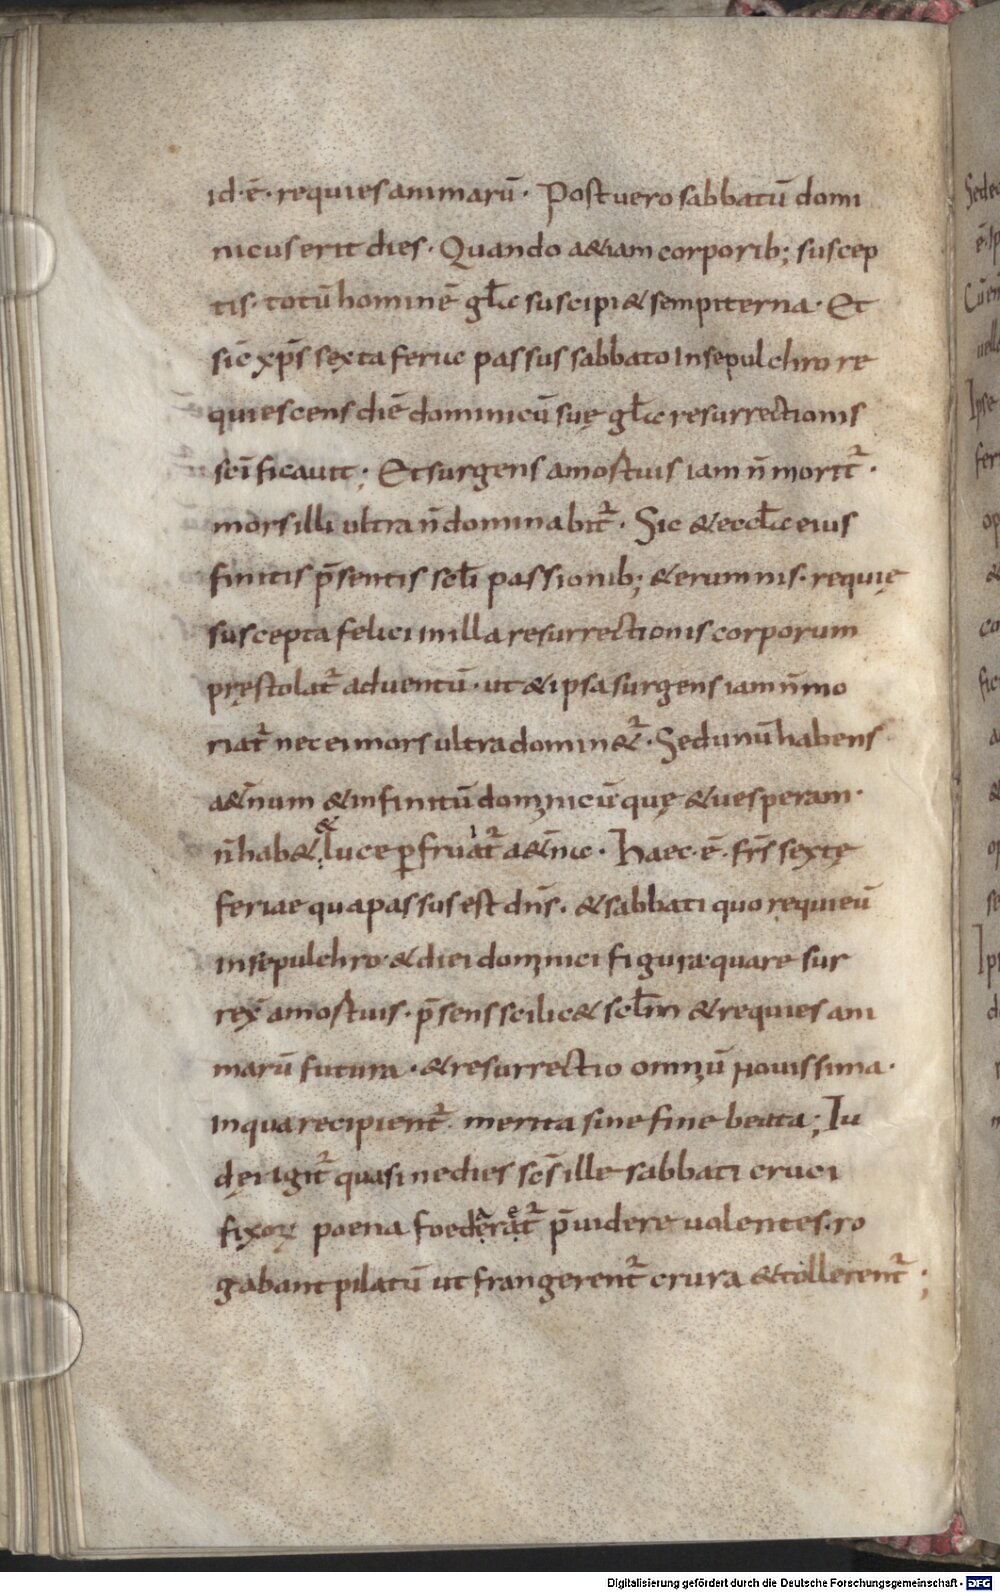 id·ē· requies animarū· Post vero sabbatū domi
nicus erit dies· Quando a&iam corporib; suscep
tis· totū hominē gl̄ia suscipi& sempiterna· Et
sic xp̄s sexta feria passus sabbato In sepulchro re
quiescens diē dominicū suę gl̄ia resurrectionis
sc̄ificauit; Et surgens amortuis iam n̄ moritr̄·
mors illi ultra n̄ dominabitr̄· Sic & eccl̄ia eius
finitis p̄sentis scl̄i passionib; & erumnis· requię
suscepta felici in illa resurrectionis corporum
pręstolatr̄ aduentū· ut & ipsa surgens iam n̄ mo
riatr̄ nec ei mors ultra domin&r̄· Sed unū habens
a&n̄um & infinitū dominicū quę & uesperam·
n̄ hab& & luce ꝑfruatr̄ a&n̄ia· Haec·ē· frs̄ sextę
feriae qua passus est dn̄s· & sabbati quo requieū
in sepulchro· & diei dominici figura· quare sur
rex̄ amortuis· p̄sens scilic& scl̄m & requies ani
marū futura· & resurrectio omniū nouissima·
In qua recipientr̄ merita sine fine beata; Iu
dęi igitr̄ quasi ne dies sc̄s ille sabbati cruci
fixoꝝ poena foederatr̄ p̄uidere uolentes· ro
gabant pilatū ut frangerentr̄ crura & tollerentr̄;
Digitalisierung gefördert durch die Deutsche Forschungsgemeinschaft · DFG